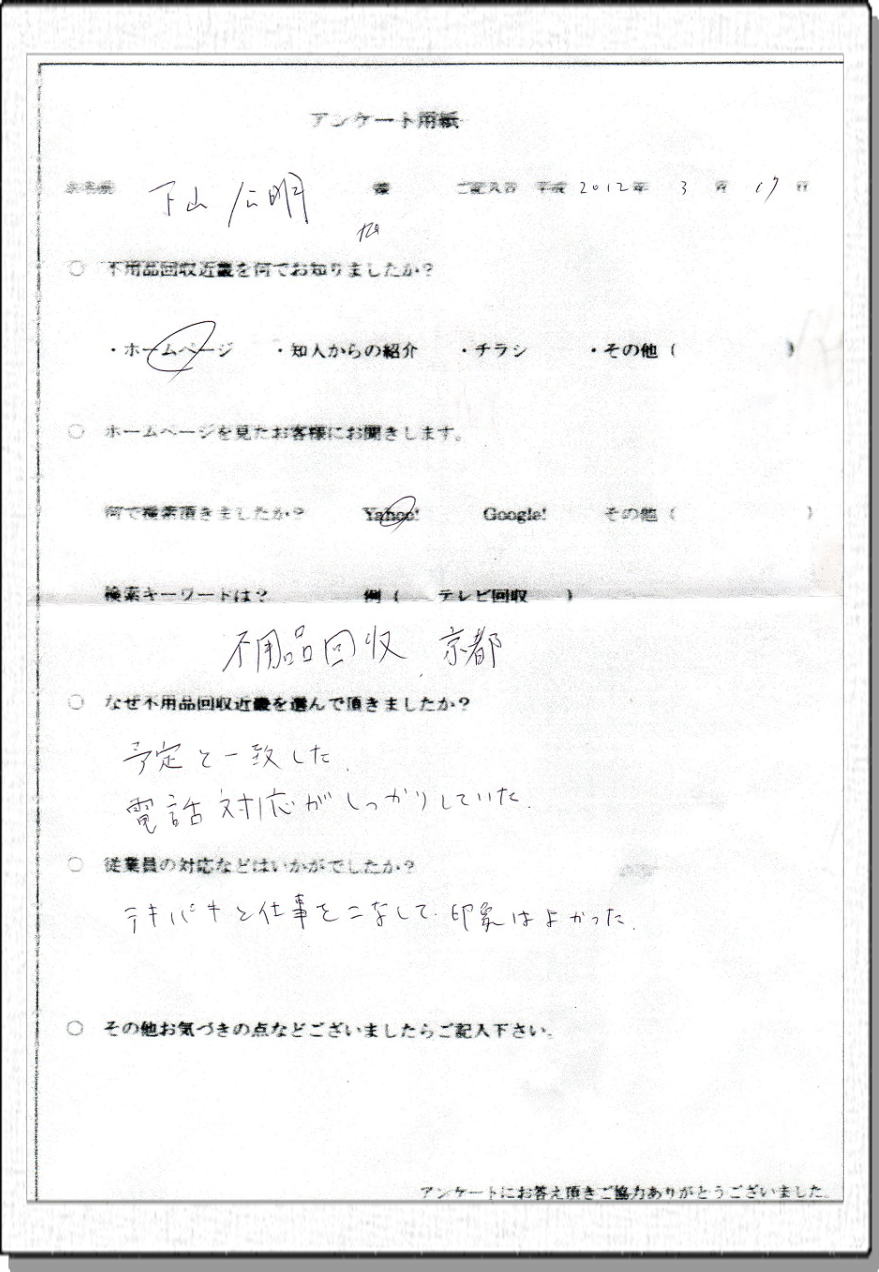 アンケート用紙
お名前 下山 広明 様 ご記入日 平成 2012年 3 月 17 日
○ 不用品回収近畿を何でお知りましたか?
・ホームページ ・知人からの紹介 ・チラシ ・その他( )
○ ホームページを見たお客様にお聞きします。
何で検索頂きましたか? Yahoo! Google! その他( )
検索キーワードは? 例( テレビ回収 )
不用品回収 京都
○ なぜ不用品回収近畿を選んで頂きましたか?
予定と一致した.
電話対応がしっかりしていた.
○ 従業員の対応などはいかがでしたか?
テキパキと仕事をこなして、印象はよかった.
○ その他お気づきの点などございましたらご記入下さい。
アンケートにお答え頂きご協力ありがとうございました。